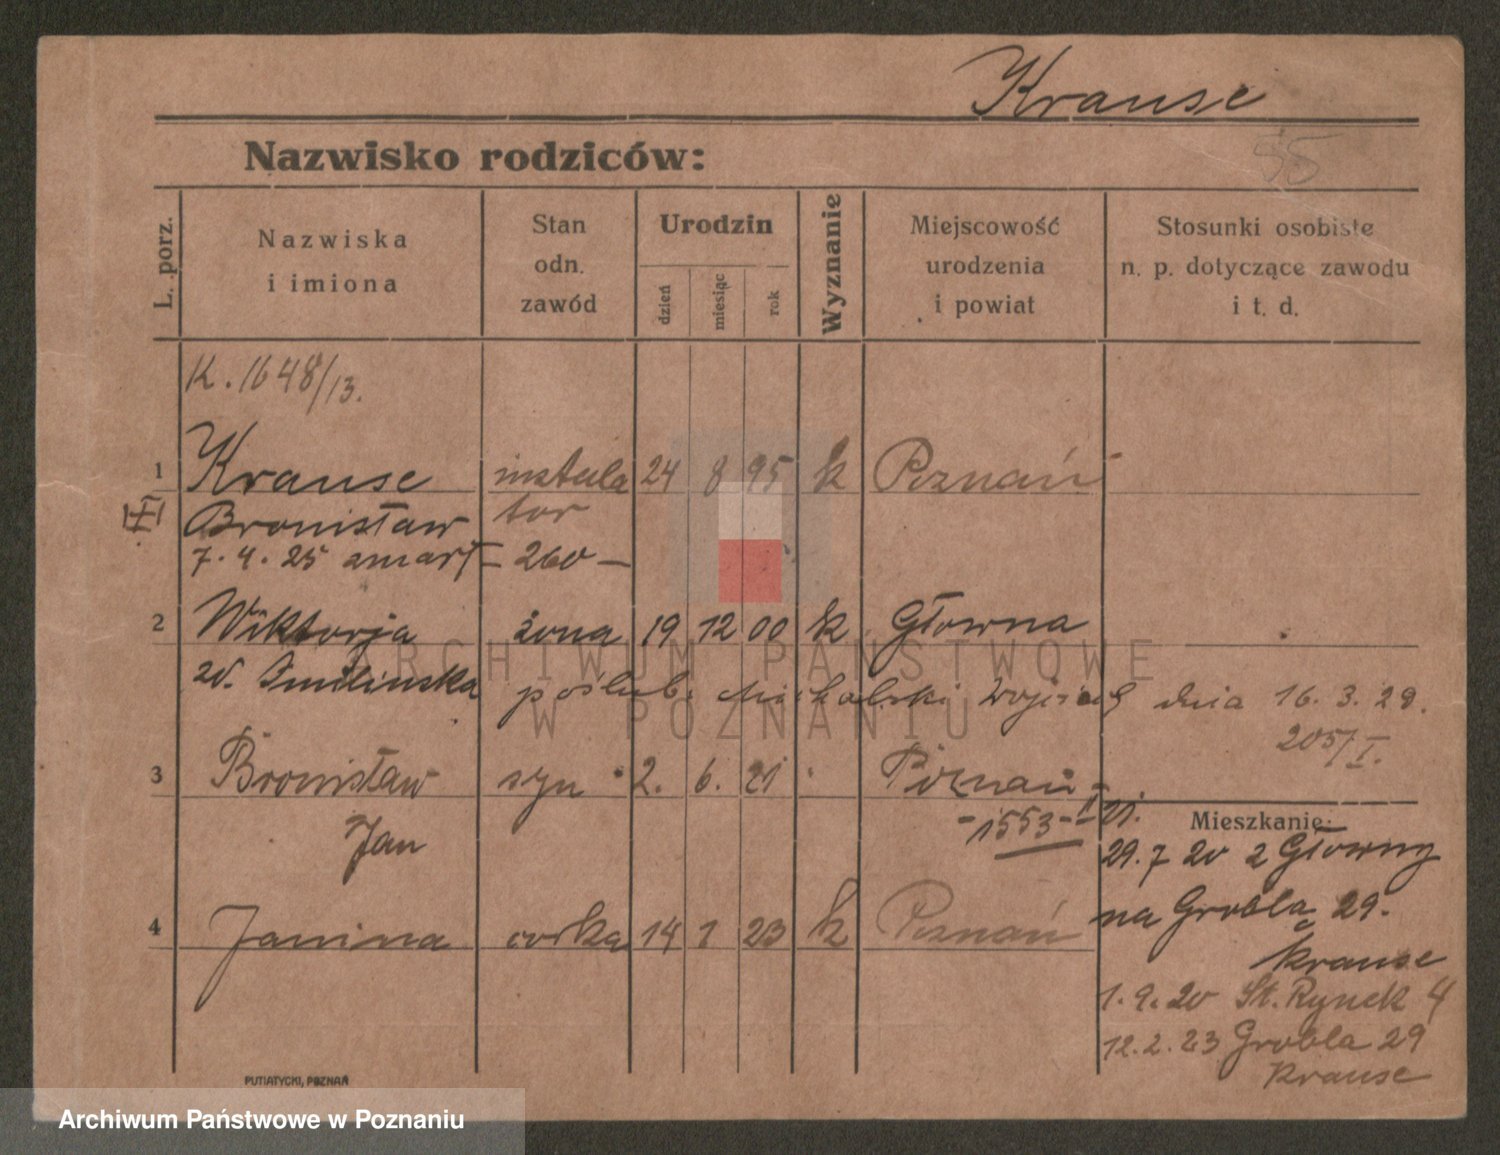 Krause
55
Nazwisko rodziców:
L. porz.
Nazwiska
i imiona
Stan
odn.
zawód
Urodzin
dzień
miesiąc
rok
Wyznanie
Miejscowość
urodzenia
i powiat
Stosunki osobiste
n. p. dotyczące zawodu
i t. d.
K. 1648/13.
1 Krause instala 24 8 95 k Poznań
Bronisław tor
7. 4. 25 zmarł – 260 –
2 Wiktorja żona 19 12 00 k Główna
ARCHIWUM PAŃSTWOWE
W POZNANIU
zd. Smilinska poślub. Michalski Wojciech dnia 16. 3. 29.
205/I.
3 Bronisław syn 2. 6. 21 Poznań
Jan
-1553- 21.
Mieszkanie:
29. 7 20 z Głowny
na Grobla 29.
Krause
4 Janina corka 14 1 23 k Poznań
1. 9. 20 St. Rynek 4
12. 2. 23 Grobla 29
Krause
PUTIATYCKI, POZNAŃ
Archiwum Państwowe w Poznaniu